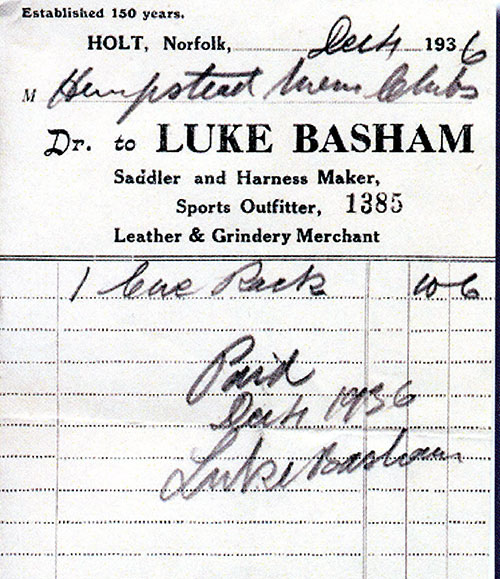 Established 150 years.
HOLT, Norfolk, Dec 4 1936
M Hempstead Mens Clubs
Dr. to LUKE BASHAM
Saddler and Harness Maker,
Sports Outfitter, 1385
Leather & Grindery Merchant
1 Cue Rack 10 6
Paid
Dec 4 1936
Luke Basham